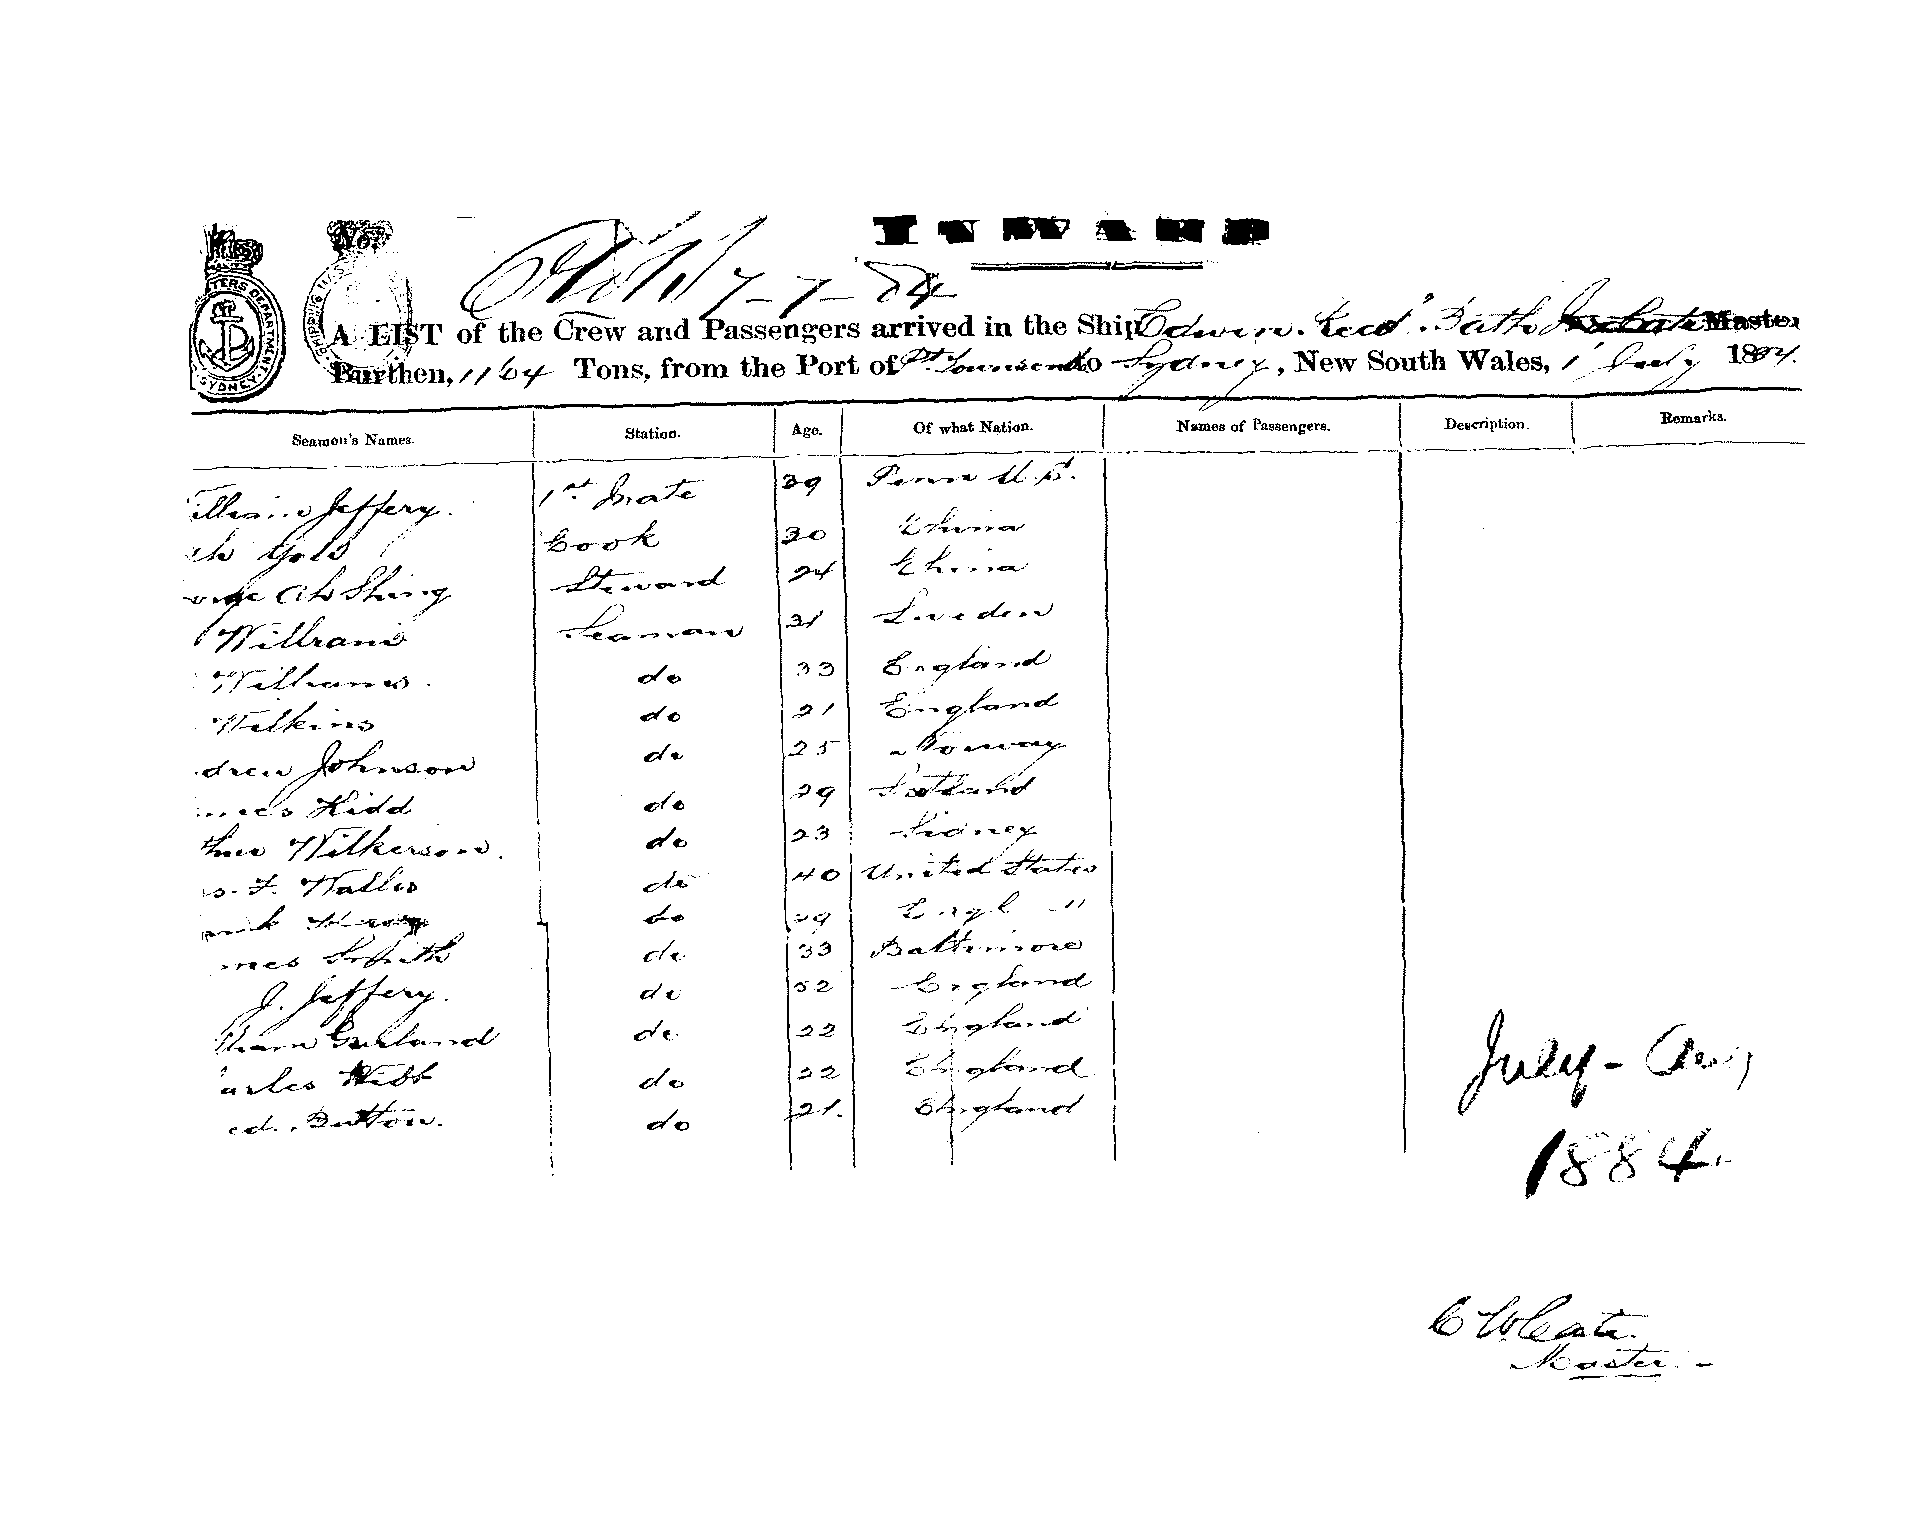 No.
INWARD
7-7-84
A LIST of the Crew and Passengers arrived in the Ship Edwin Reed Bath Master
Burthen, 1164 Tons, from the Port of Pt. Townsend to Sydney, New South Wales, 1 July 1884.
Seamen's Names. Station. Age. Of what Nation. Names of Passengers. Description. Remarks.
illiam Jeffery. 1st Mate 39 Penn U.S.
Ah Gold Cook 30 China
orge Ah Shing Steward 24 China
Seaman 31 Sweden
Williams. do 33 England
Wilkins do 21 England
drew Johnson do 25 Norway
mes Kidd do 29 Scotland
thur Wilkerson. do 23 Sidney
s. F. Wallis do 40 United States
do 29
mes Smith do 33 Baltimore
J. Jeffery. do 52 England
lliam Garland do 22 England
arles Webb do 22 England
ed. Button. do 21. England
July - Aug
1884.
C W Gate.
Master.